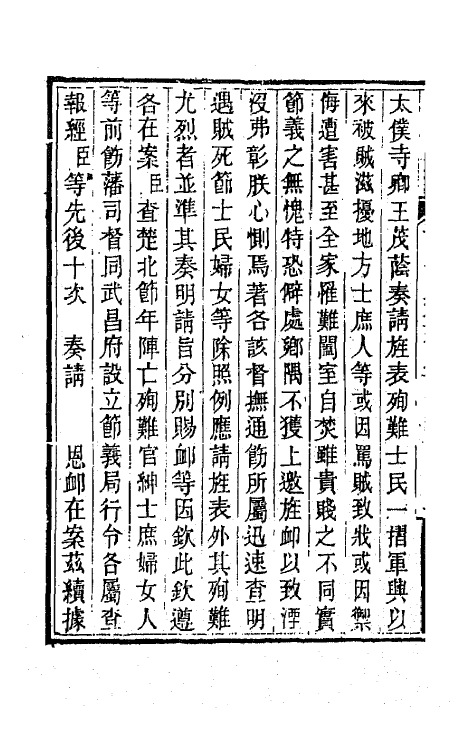 太僕寺卿王茂蔭奏請旌表殉難士民一摺軍興以
來被賊滋擾地方士庶人等或因罵賊致戕或因禦
侮遭害甚至全家罹難闔室自焚雖貴賤之不同實
節義之無愧特恐僻處鄉隅不獲上邀旌卹以致湮
沒弗彰朕心惻焉著各該督撫通飭所屬迅速查明
遇賊死節士民婦女等除照例應請旌表外其殉難
尤烈者並準其奏明請旨分別賜卹等因欽此欽遵
各在案臣查楚北節年陣亡殉難官紳士庶婦女人
等前飭藩司督同武昌府設立節義局行令各屬查
報經臣等先後十次 奏請 恩卹在案茲續據